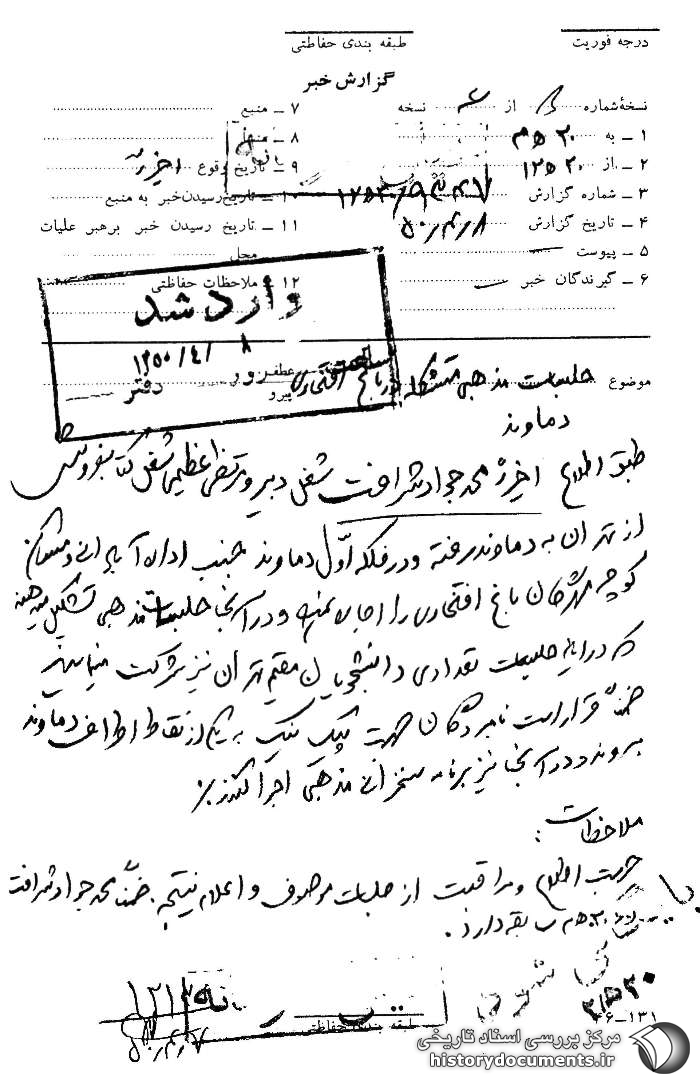 درجه فوریت
طبقه بندی حفاظتی
گزارش خبر
نسخهٔ شماره از نسخه
۱ ـ به ۲۰ ه‍ م
۲ ـ از ۲۰ ه‍ ۱۲
۳ ـ شماره گزارش
۴ ـ تاریخ گزارش ۵۰/۴/۸
۵ ـ پیوست
۶ ـ گیرندگان خبر
۷ ـ منبع
۸ ـ منشأ
۹ ـ تاریخ وقوع اخیراً
۱۰ ـ تاریخ رسیدن خبر به منبع
۱۱ ـ تاریخ رسیدن خبر برهبر عملیات
محل
۱۲ ـ ملاحظات حفاظتی
وارد شد
۱۳۵۰/۴/۸
دفتر
عطف
پیرو
موضوع جلسات مذهبی متشکله در باغ افتخاری
دماوند
طبق اطلاع اخیراً محمدجواد شرافت شغل دبیر و مرتضی اعظیمی شغل کتابفروش
از تهران به دماوند رفته و در فلکه اول دماوند جنب اداره آبیاری
کوچه باغ افتخاری را اجاره نموده و در آنجا جلسات مذهبی تشکیل میدهند
که در این جلسات تعدادی دانشجویان مقیم تهران نیز شرکت مینمایند
ضمناً قرار است نامبردگان جهت پیک نیک به یکی از نقاط اطراف دماوند
بروند و در آنجا نیز برنامه سخنرانی مذهبی اجرا کنند
ملاحظات:
جهت اطلاع و مراقبت از جلسات موصوف و اعلام نتیجه. ضمناً محمدجواد شرافت
سابقه دارد.
بایگانی شود
۱۳۱ـ۶
طبقه بندی حفاظتی
۵۰/۴/۷
مرکز بررسی اسناد تاریخی
historydocuments.ir